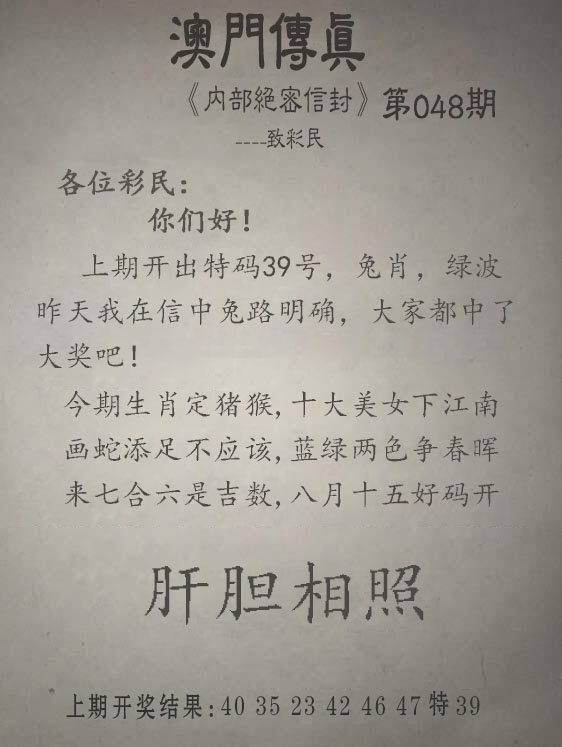 澳門傳眞
《内部絕密信封》第048期
----致彩民
各位彩民:
你们好!
上期开出特码39号，兔肖，绿波
昨天我在信中兔路明确，大家都中了
大奖吧!
今期生肖定猪猴,十大美女下江南
画蛇添足不应该,蓝绿两色争春晖
来七合六是吉数,八月十五好码开
肝胆相照
上期开奖结果:40 35 23 42 46 47特39